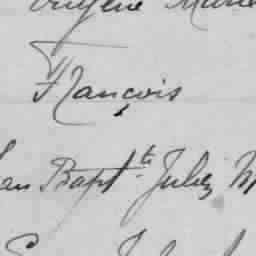 Eugène Marie
François
Jean Bapt.te Jules M